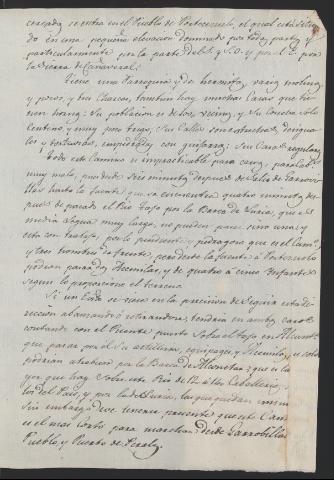 cercada, se entra en el Pueblo de Portezuelo, el qual está situa
do en una pequeña elevacion dominado por todas partes, y
particularmente por la parte del S. y S.O. y por el E. por
la Sierra de Cañaveral.
Tiene una Parroquia, y dos hermitas, varios molinos
y pozos, y dos Charcas, tambien hay muchas Casas que tie
nen hornos: Su poblacion es de vecinos, y Su Cosecha solo
Centeno y muy poco trigo; Sus Calles son estrechas, desigua
les y tortuosas, empedradas con guijarros; Sus Casas regulares
Todo este Camino es impracticable para carros, para Caballos
muy malo, pues desde seis minutos despues de Salir de Garrovi
llas hasta la fuente que se encuentra quatro minutos des
pues de pasado el Rio Tajo por la Barca de Luria, que es
media legua muy larga, no pueden pasar sino uno, y
esto con trabajo, por lo pendiente y pedragoso que es el Camino
y tres hombres de frente, pero desde la fuente a Portezuelo
podrian pasar dos Acemilas, y de quatro à cinco Infantes
segun lo proporcione el terreno.
Si un Exto. se viese en la precision de seguir esta di
reccion abanzando ò retirandose, tendria en ambos casos
contando con el Puente puesto sobre el Tajo en Alconetar
que pasar por el su artilleria, equipages, y Acemilas, y solo
podrian atrabesar por la Barca de Alconetar; que es la ma
yor que hay sobre este Rio de 12 à 14 Caballerias
del Pais, y por la de Luria,
Sin embargo deve tenerse presente que este Camino
es el mas corto para marchar desde Garrobillas
Pueblo, y Puerto de Perales